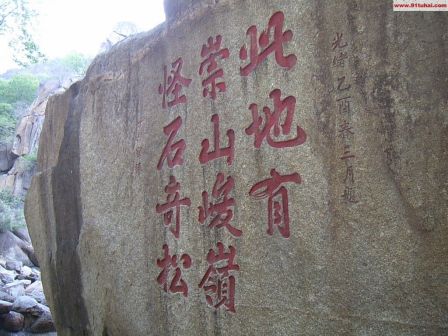 www.91tuhai.com
光緒乙酉春三月題
此地有
崇山峻嶺
怪石奇松